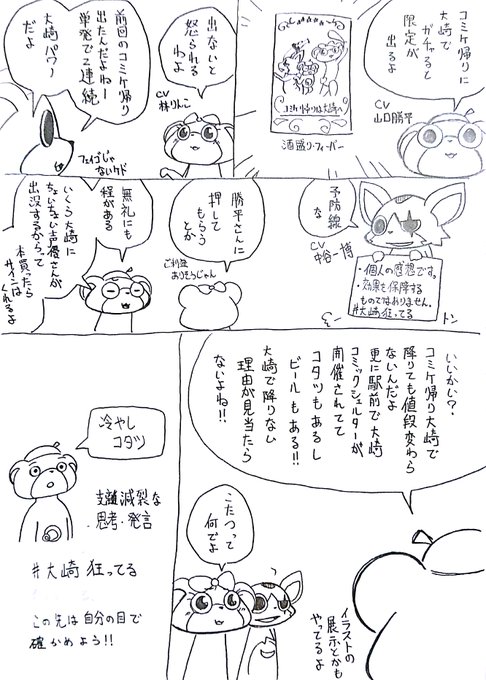 コミケ帰りに
大崎で
ガチャると
限定が
出るよ
CV
山口勝平
コミケ帰りは大崎へ
酒盛り・フィーバー
出ないと
怒られる
わよ
CV
林りんこ
前回のコミケ帰り
出たんだよねー
単発で2連続
大崎パワー
だよ
フェイゴじゃ
ないケド
予防線
な
CV
中谷一博
・個人の感想です。
・効果を保障する
ものではありません。
#大崎狂ってる
トン
勝平さんに
押して
もらう
とか
ご利益
ありそうじゃん
無礼にも
程がある
いくら大崎に
ちょいちょい声優さんが
出没するからって
本買ったら
サインは
くれるよ
いいかい?
コミケ帰り大崎で
降りても値段変わら
ないんだよ
更に駅前で大崎
コミックシェルターが
開催されてて
コタツもあるし
ビールもある!!
大崎で降りない
理由が見当たら
ないよね!!
イラストの
展示とかも
やってるよ
こたつって
何でよ
冷やし
コタツ
支離滅裂な
思考・発言
#大崎狂ってる
この先は自分の目で
確かめよう!!